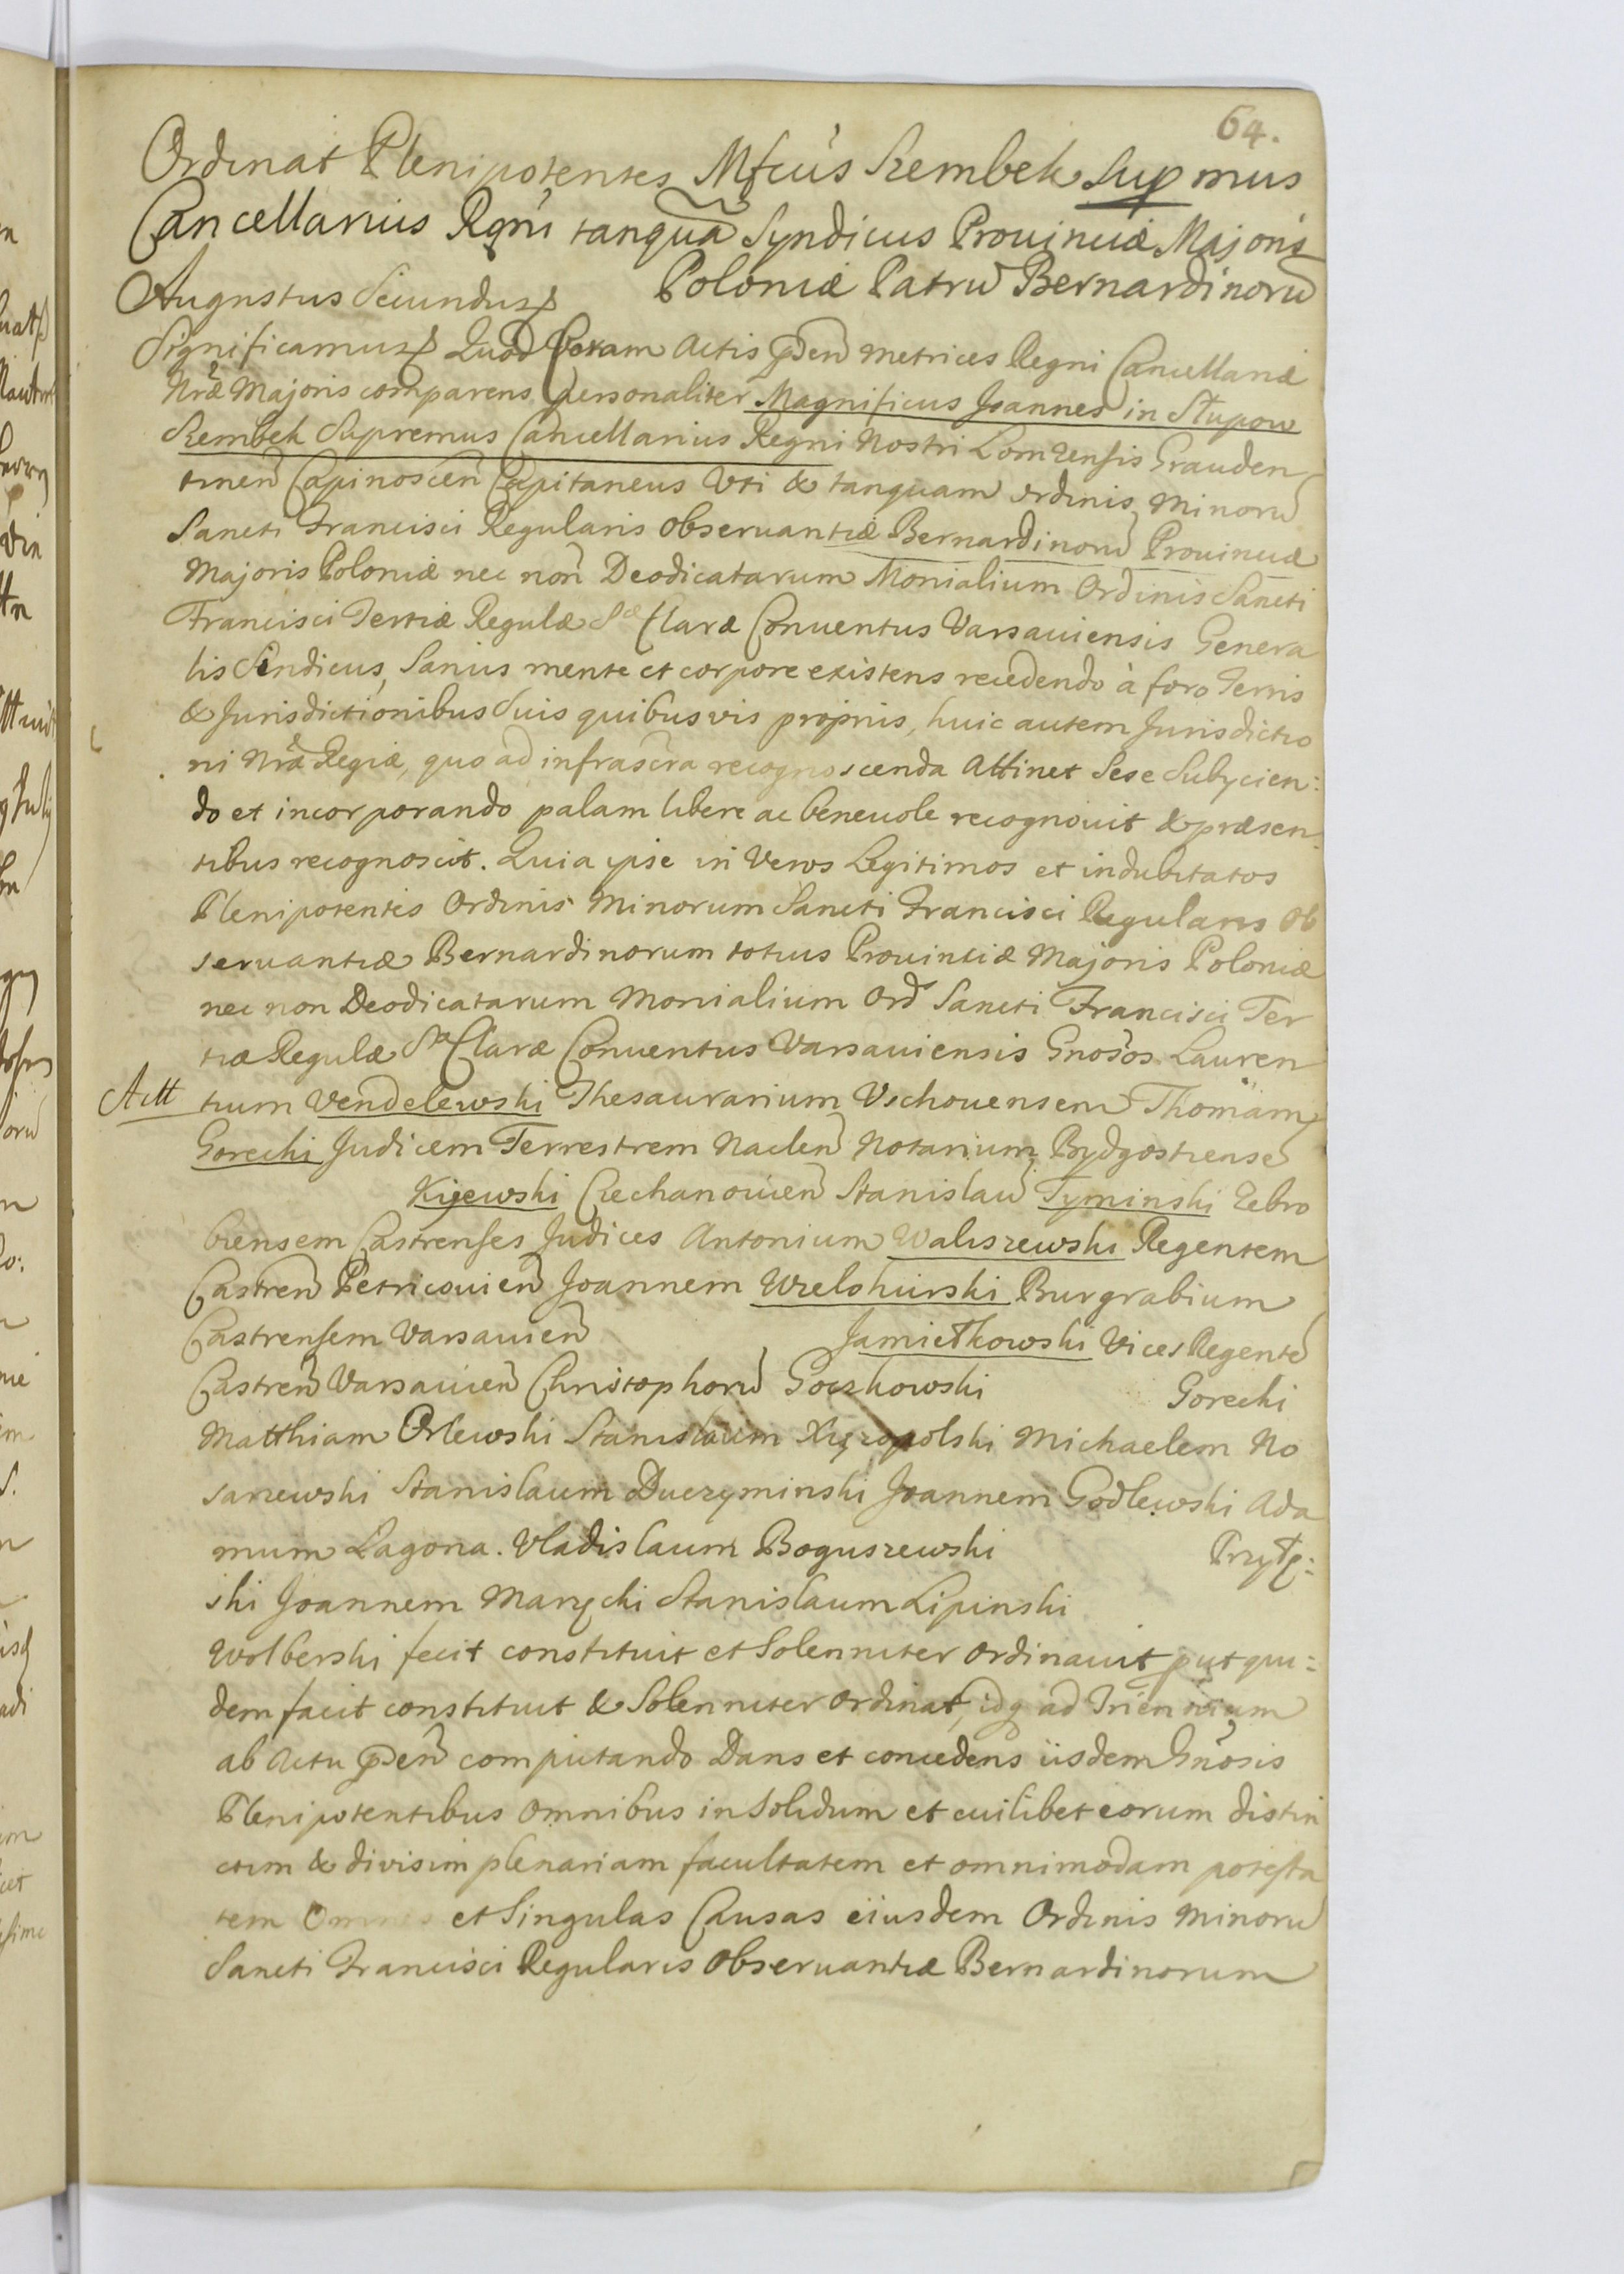 64.
Ordinat Plenipotentes Mfcus Szembek Supmus
Cancellarius Rgni tanqua Syndicus Prouinciæ Majoris
Poloniæ Patrū Bernardinorū
Augustus Secundus
Significamus Quod Coram Actis pñtiū Metrices Regni Cancellariæ
Nræ Majoris comparens personaliter Magnificus Joannes in Słupow
Szembek Supremus Cancellarius Regni Nostri Lomzensis Grauden
tinen̄ Copinoscen̄ Capitaneus Uti & tanquam ordinis Minorū
Sancti Francisci Regularis Obseruantiæ Bernardinorū Prouinciæ
Majoris Poloniæ nec non Deodicatarum Monialium Ordinis Sancti
Francisci Tertiæ Regulæ Sæ Claræ Conuentus Varsauiensis Genera
lis Sindicus, Sanus mente et corpore existens recedendo à foro Terris
& Jurisdictionibus Suis quibusvis proprijs, huic autem Jurisdictio
ni Nræ Regiæ, quo ad infrascra recognoscenda Attinet Sese Subycien:
do et incorporando palam libere ac beneuole recognouit & præsen
tibus recognoscit. Quia ipse in Veros Legitimos et indubitatos
Plenipotentes Ordinis Minorum Sancti Francisci Regularis Ob
seruantiæ Bernardinorum totius Prouinciæ Majoris Poloniæ
nec non Deodicatarum Monialium Ord Sancti Francisci Ter
tiæ Regulæ Sæ Claræ Conuentus Varsauiensis Gnosos Lauren
Actt tium Vendelewski Thesaurarium Vschouensem Thomam
Gorecki Judicem Terrestrem Naclen̄ Notarium Bydgostiense
Kijewski Czechanouien̄ Stanislaū Tyminski Zebro
biensem Castrenses Judices Antonium Waliszewski Regentem
Castren̄ Petricouien̄ Joannem Wielohurski Burgrabium
Castrensem Varsauien̄ Jamiełkowski Vices Regentē
Castren̄ Varsauien̄ Christophorū Goczkowski Gorecki
Matthiam Orlewski Stanislaum Xięzopolski Michaelem No
sarzewski Stanislaum Duczyminski Joannem Godlewski Ada
mum Lagona. Vladislaum Boguszewski Przyłę:
ski Joannem Marzęcki Stanislaum Lipinski
Wolberski fecit constituit et Solenniter Ordinauit put qui:
dem facit constituit & Solenniter Ordinat, idq ad Triennium
ab Actu pñti computando Dans et concedens iisdem Gnosis
Plenipotentibus Omnibus in Solidum et cuilibet eorum distin
ctim & divisim plenariam facultatem et omnimodam potesta
tem Omnes et Singulas Causas eiusdem Ordinis Minorū
Sancti Francisci Regularis Obseruantiæ Bernardinorum